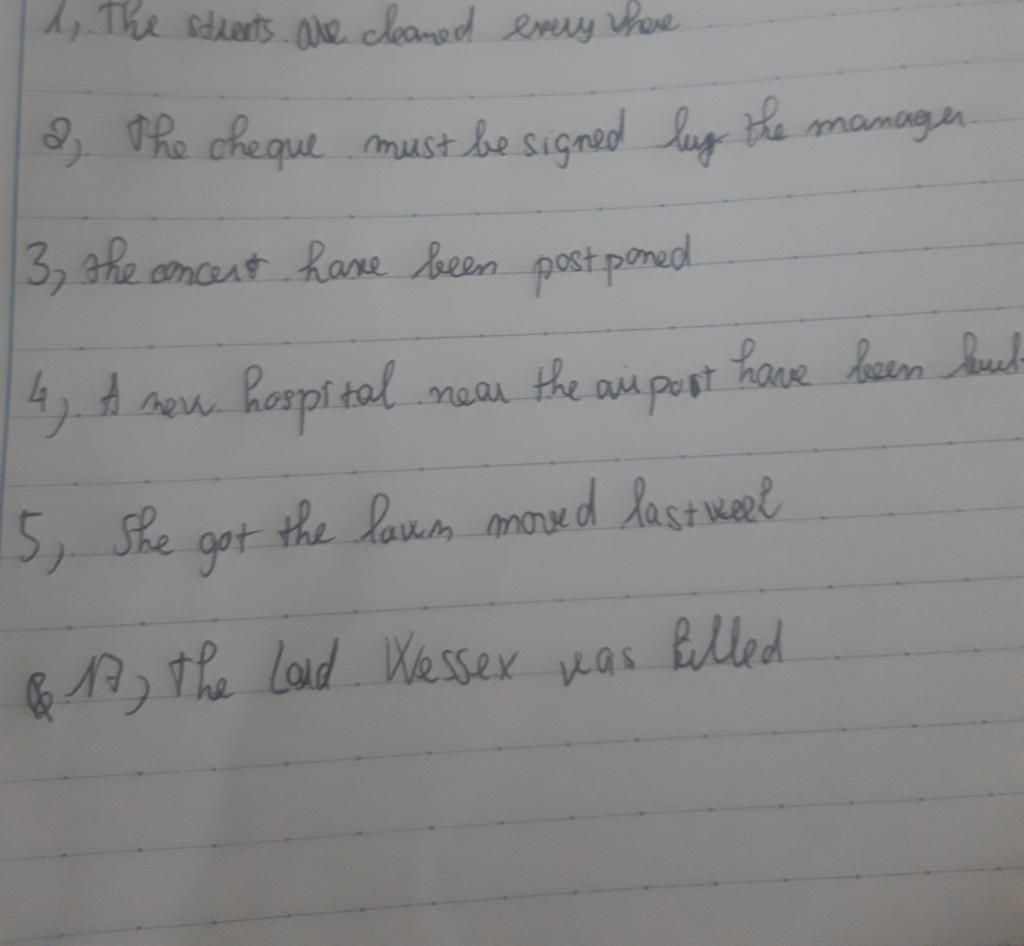 1, The streets are cleaned every where
2, The cheque must be signed by the manager
3, the concert have been postponed
4, A new hospital near the airport have been built
5, She got the lawn mowed last week
17, the Lord Wessex was killed